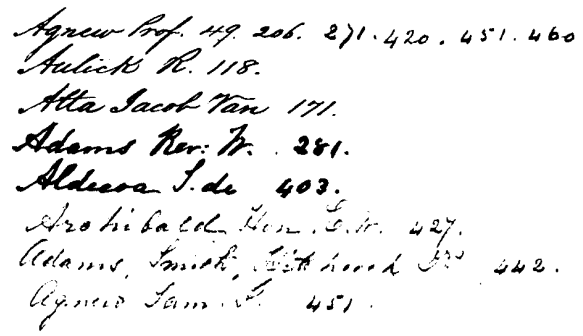 Agnew Prof. 49. 206. 271. 420. 451. 460
Aulick R. 118.
Atta Jacob Van 171.
Adams Rev: W. 281.
Aldecoa J. de 403.
Archibald Hon. E. 427.
Adams, Smith, 442.
Agnew Sam. 451.